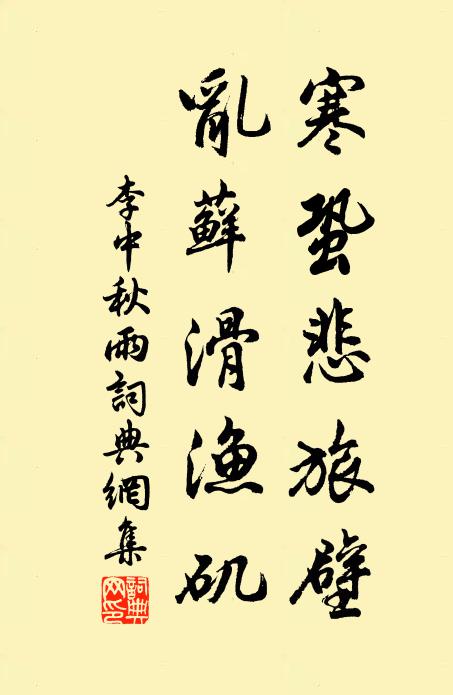 寒蛩悲旅壁
亂蘚滑漁矶
李中秋雨詞典網集
詞典网印